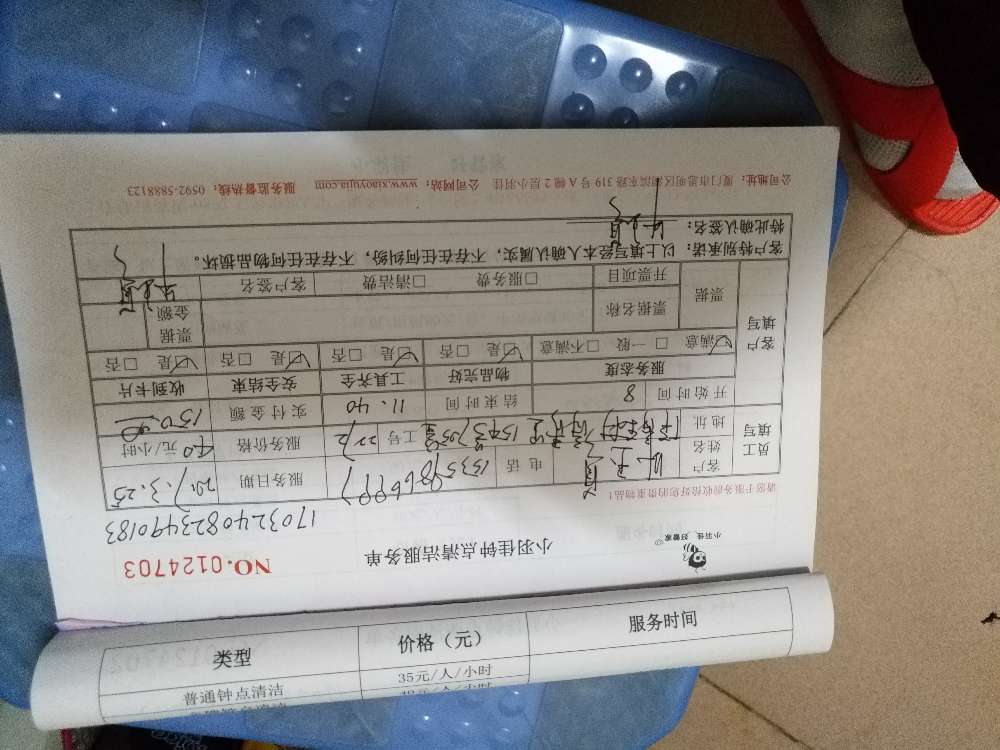 小羽佳 好管家
小羽佳钟点清洁服务单
NO.0124703
1703240823490183
请您于服务前收拾好您的贵重物品！
员工填写
客户姓名
电话
服务日期
2017.3.25
地址
工号
服务价格
40元/小时
开始时间 8
结束时间 11.40
实付金额 150
客户填写
服务态度 物品完好 工具齐全 安全结束 收到卡片
☑满意 □一般 □不满意 ☑是 □否 ☑是 □否 ☑是 □否 ☑是 □否
票据
票据名称
票据金额
开票项目 □服务费 □清洁费 客户签名
客户特别承诺：以上填写经本人确认属实，不存在任何纠纷，不存在任何物品损坏。
特此确认签名：
公司地址：厦门市思明区湖滨东路319号A幢2层小羽佳 公司网站：www.xiaoyujia.com 服务监督热线：0592-5888123
类型 价格（元） 服务时间
普通钟点清洁 35元/人/小时